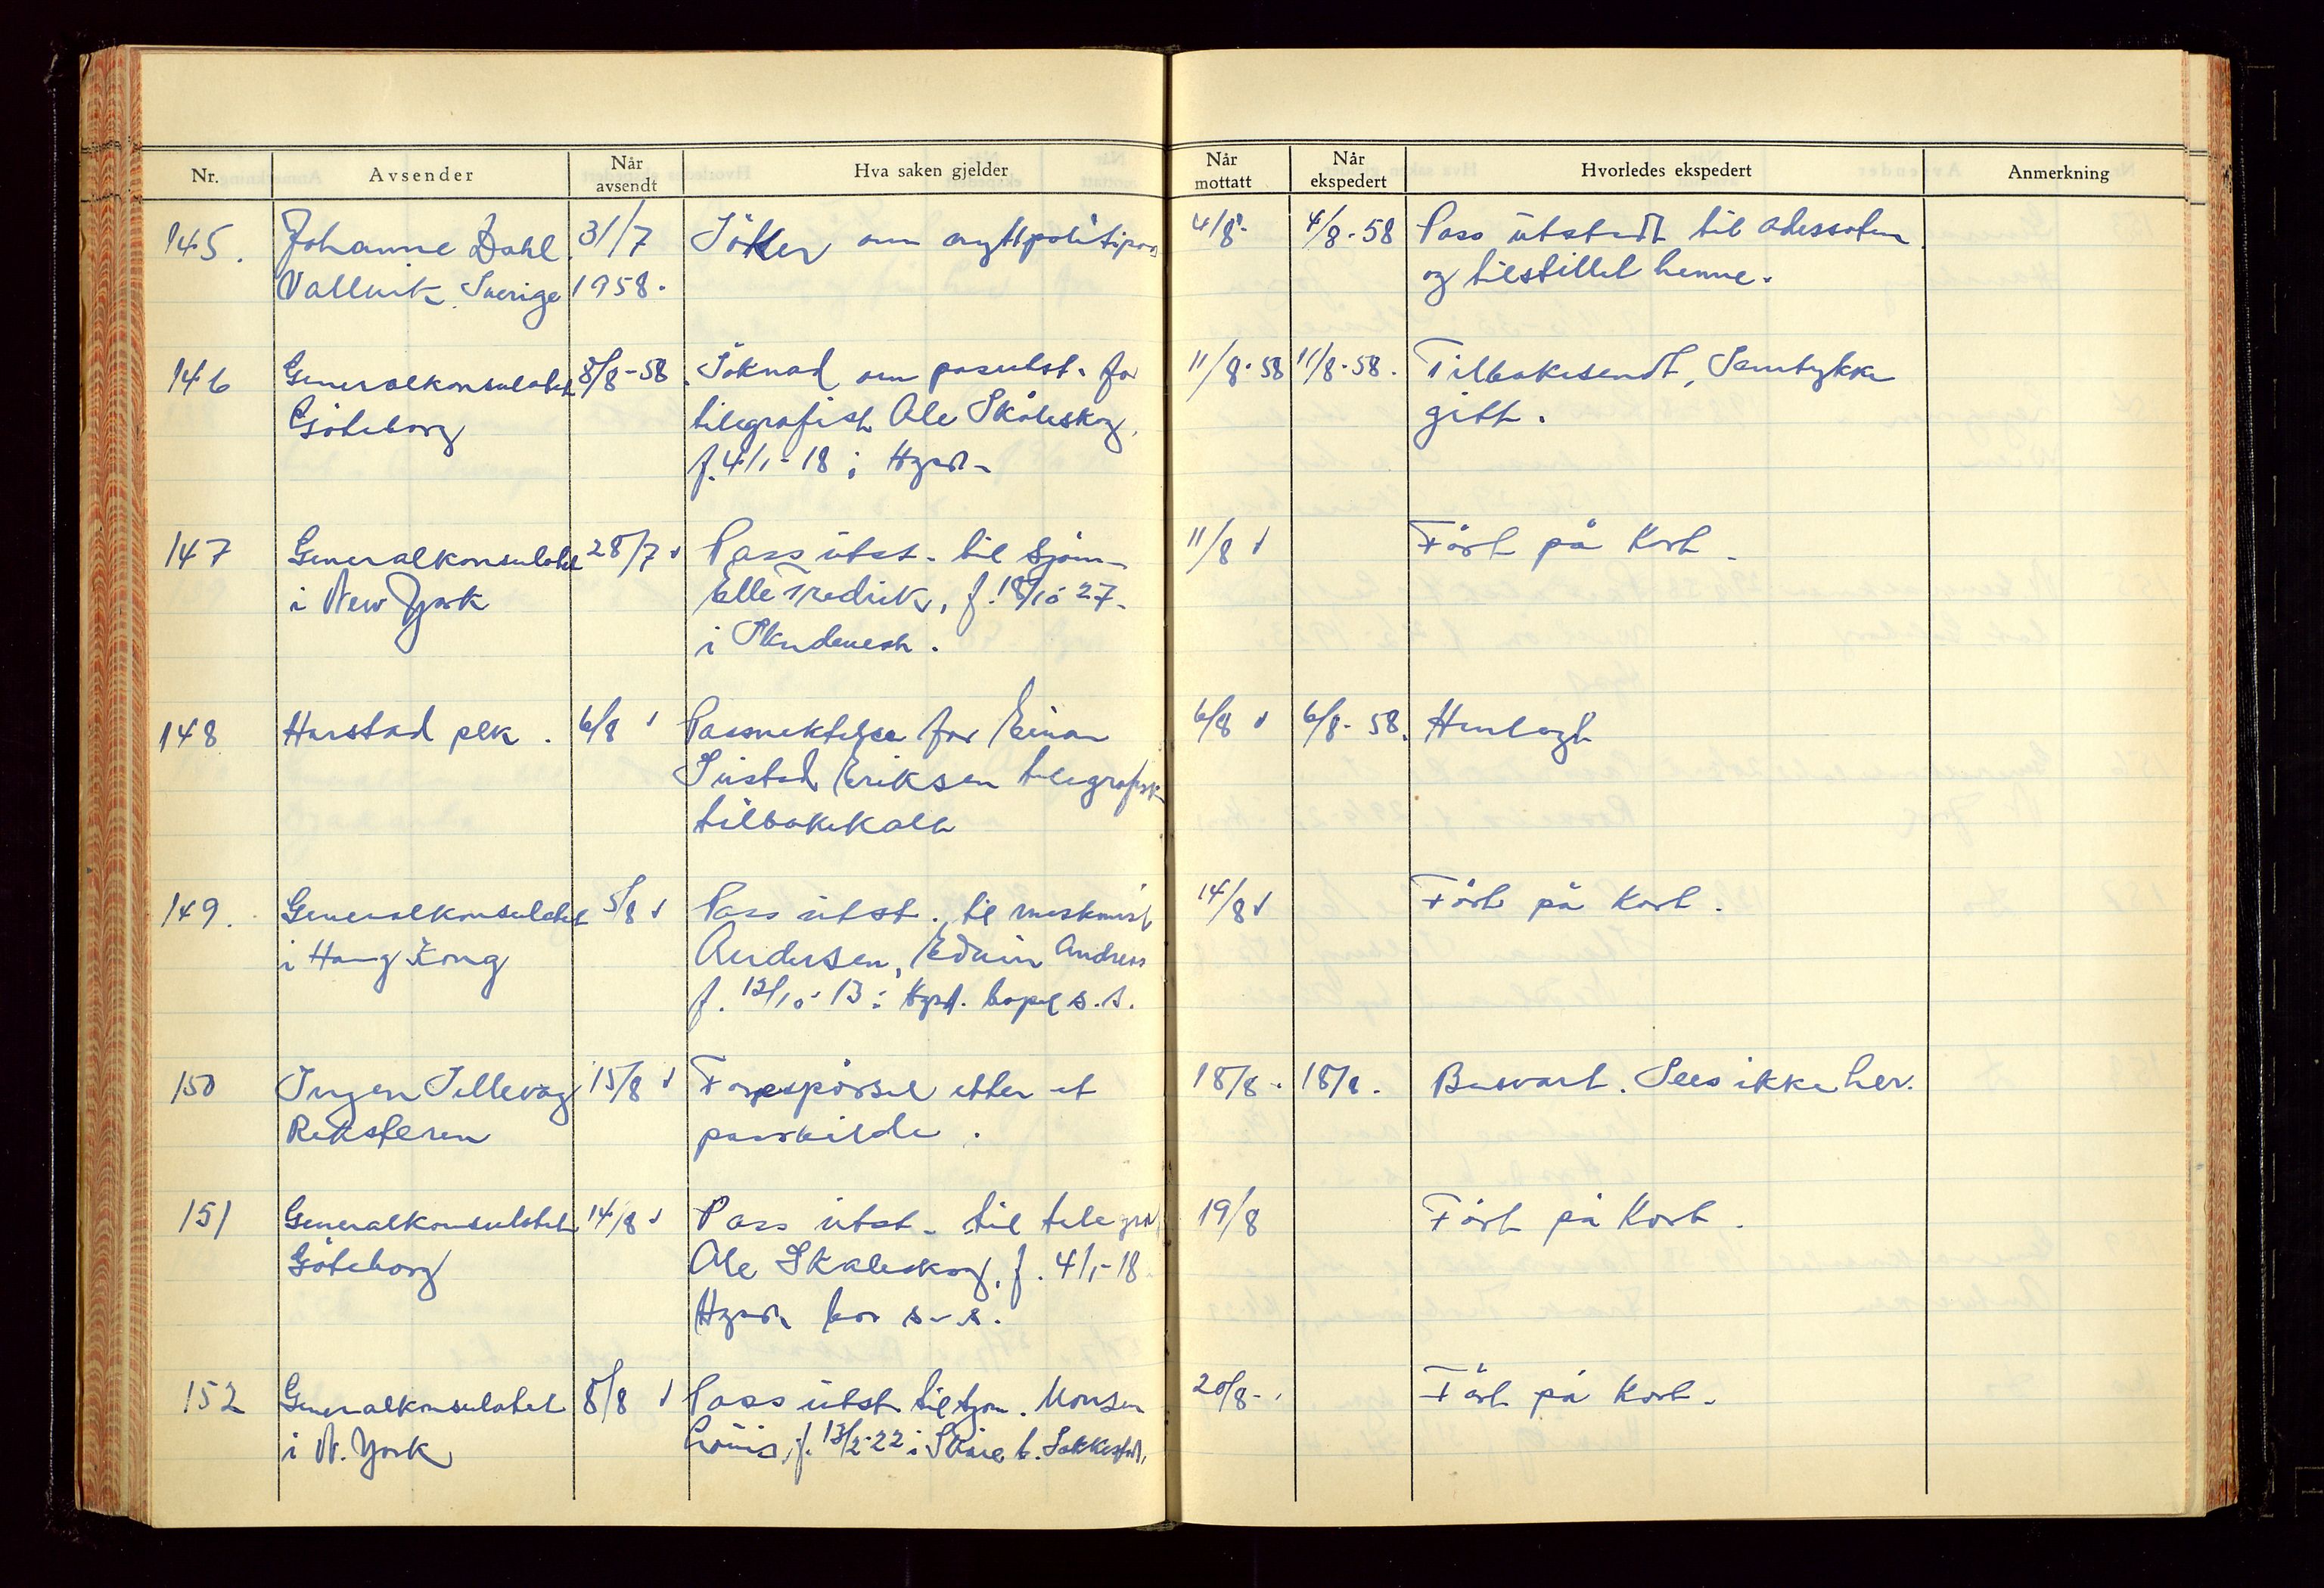 Nr.
Avsender
Når avsendt
Hva saken gjelder
Når mottatt
Når ekspedert
Hvorledes ekspedert
Anmerkning
145. Johanne Dahl 31/7 Söker om nytt politipass 4/8- 4/8-58 Pass utstedt til adressaten
Vallvik Sverige 1958. og tilstillet henne.
146 Generalkonsulatet 8/8-58 Söknad om passutst. for 11/8-58 11/8-58. Tilbakesendt, Samtykke
Göteborg telegrafist Ole Skåleskog, gitt.
f. 4/1-18 i Hgsd-
147 Generalkonsulatet 28/7 Pass utst. til Sjöm- 11/8 Fört på Kort
i New York Fredrik, f. 18/10 27-
i Skudenesh.
148 Harstad plk. 6/8 Passnektelse for Einar 6/8 6/8-58. Henlagt
Eriksen telegrafisk
tilbakekalt
149. Generalkonsulatet 5/8 Pass utst. til maskinist 14/8 Fört på Kort.
i Hong Kong Andersen, Edvin Andreas
f. 12/10-13 i Hgsd. bopel s.s.
150 Inger Tillevåg 15/8 Forespörsel etter et 18/8- 18/8. Besvart. Sees ikke her.
Reksteren passbilde.
151 Generalkonsulatet 14/8 Pass utst. til telegraf 19/8 Fört på Kort.
Göteborg Ole Skåleskog, f. 4/1-18
Hgsd. bor s.s.
152 Generalkonsulatet 8/8 Pass utst til sjöm. Monsen 20/8- Fört på Kort.
i N. York f. 13/2-22 i Skåre b.